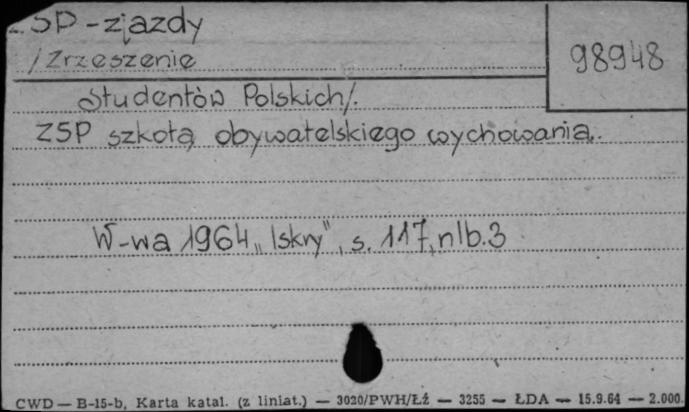 ZSP - zjazdy
/Zrzeszenie
98948
Studentów Polskich/.
ZSP szkołą obywatelskiego wychowania.
W-wa 1964 „Iskry", s. 117, nlb. 3
CWD — B-15-b, Karta katal. (z liniat.) — 3020/PWH/Łź — 3255 — ŁDA — 15.9.64 — 2.000.